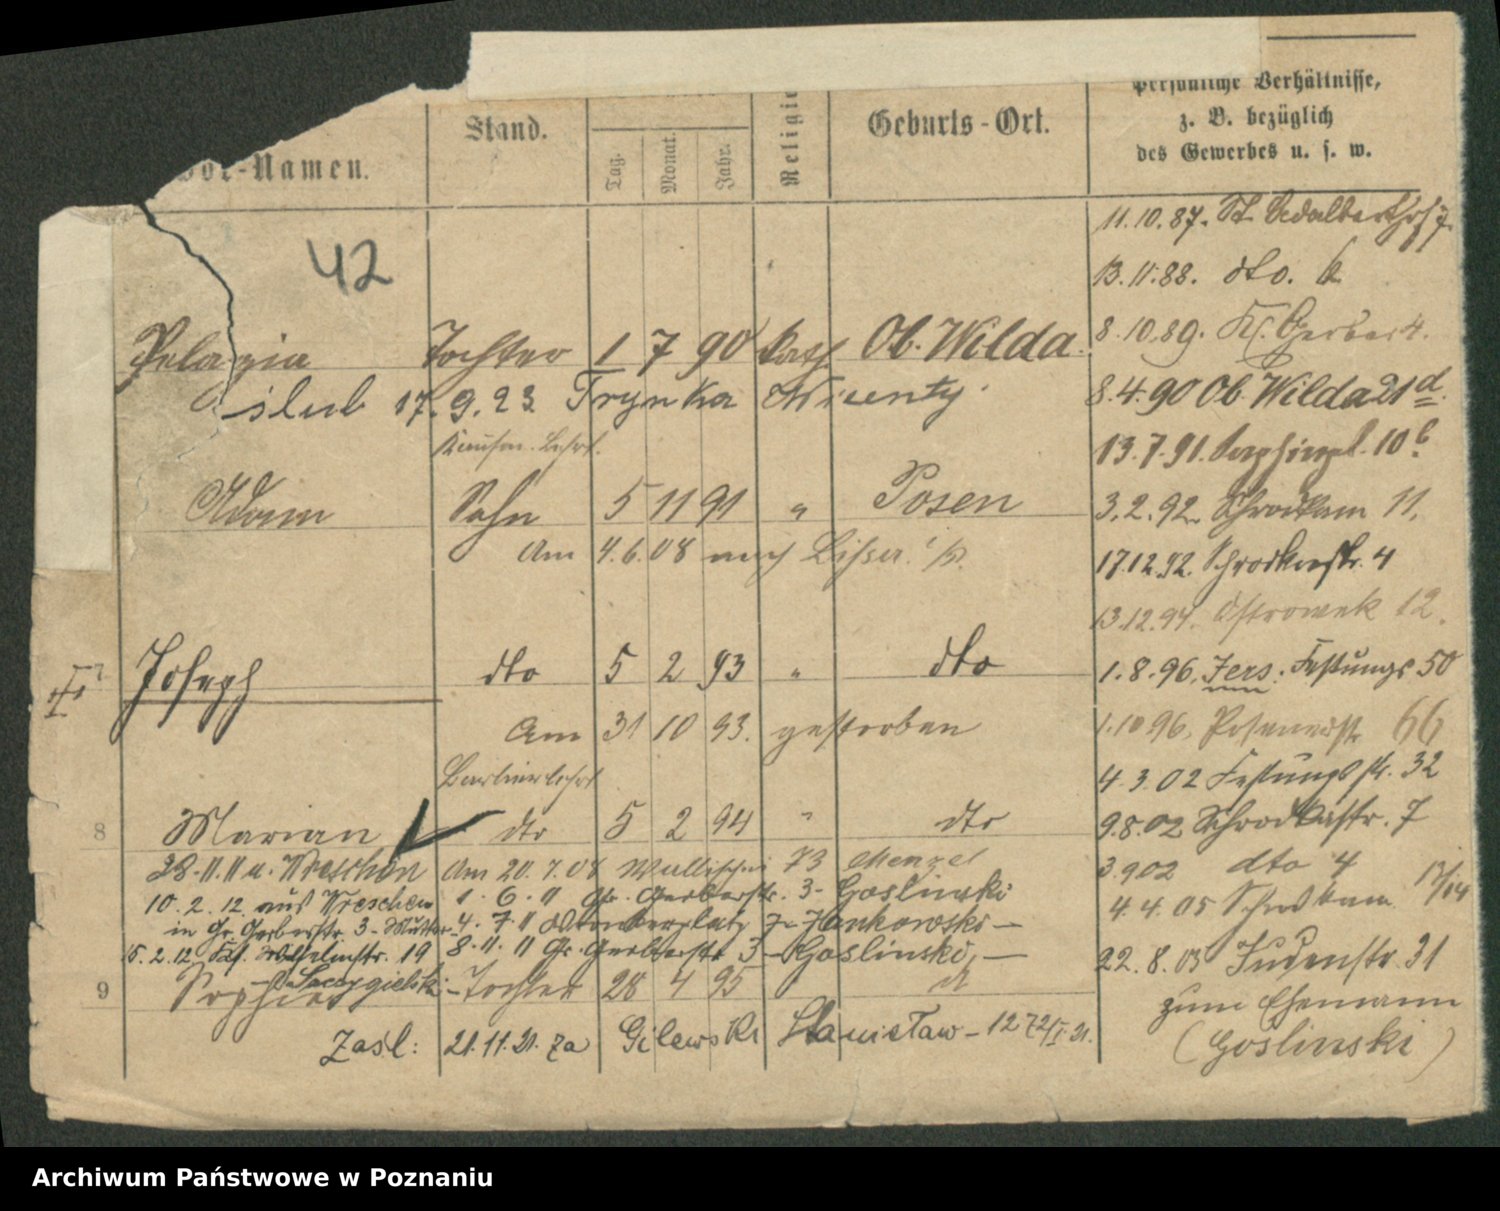 Vor-Namen.
Stand.
Tag.
Monat.
Jahr.
Religio
Geburts-Ort.
persönliche Verhältnisse,
z. B. bezüglich
des Gewerbes u. s. w.
42
Pelagia Tochter 1 7 90 kath Ob. Wilda.
ślub 17.9.23 Frynka Wicenty
Adam Sohn 5 11 91 " Posen
Am 4.6.08 nach Lissa
Joseph dto 5 2 93 " dto
Am 31 10 93. gestorben
8 Marian dto 5 2 94 " dto
28.11.11 a. Wreschen Am 20.7.08 Wallischei 73 Menzel
10.2.12. aus Wreschen 1.6.11 Gr. Gerberstr. 3- Goslinski
in Gr. Gerberstr. 3- Mutter 4.7.11 7- Jankowski —
15.2.12 19 8.11.11 Gr. Gerberstr 3 - Goslinski, —
9 Sophie - Tochter 28 4 95
Zaśl: 21.11.21. za Gilewski Stanisław - 1272/I.21.
11.10.87. St. Adalbertstr 7.
13.11.88. dto. 6
8.10.89. Kl. Gerber 4.
8.4.90 Ob. Wilda 21 d.
13.7.91. 10 b.
3.2.92. Schrodkam 11.
17.12.92. Schrodkastr. 4
13.12.94. Ostrowek 12.
1.8.96. Jers. Festungs 50
1.10.96. Posenerstr 66
4.3.02 Festungsstr. 32
9.8.02 Schrodkastr. 7
3.9.02 dto 4
4.4.05 Schrodkam. 13/14
22.8.05 Judenstr. 31
zum Ehemann
(Goslinski)
Archiwum Państwowe w Poznaniu